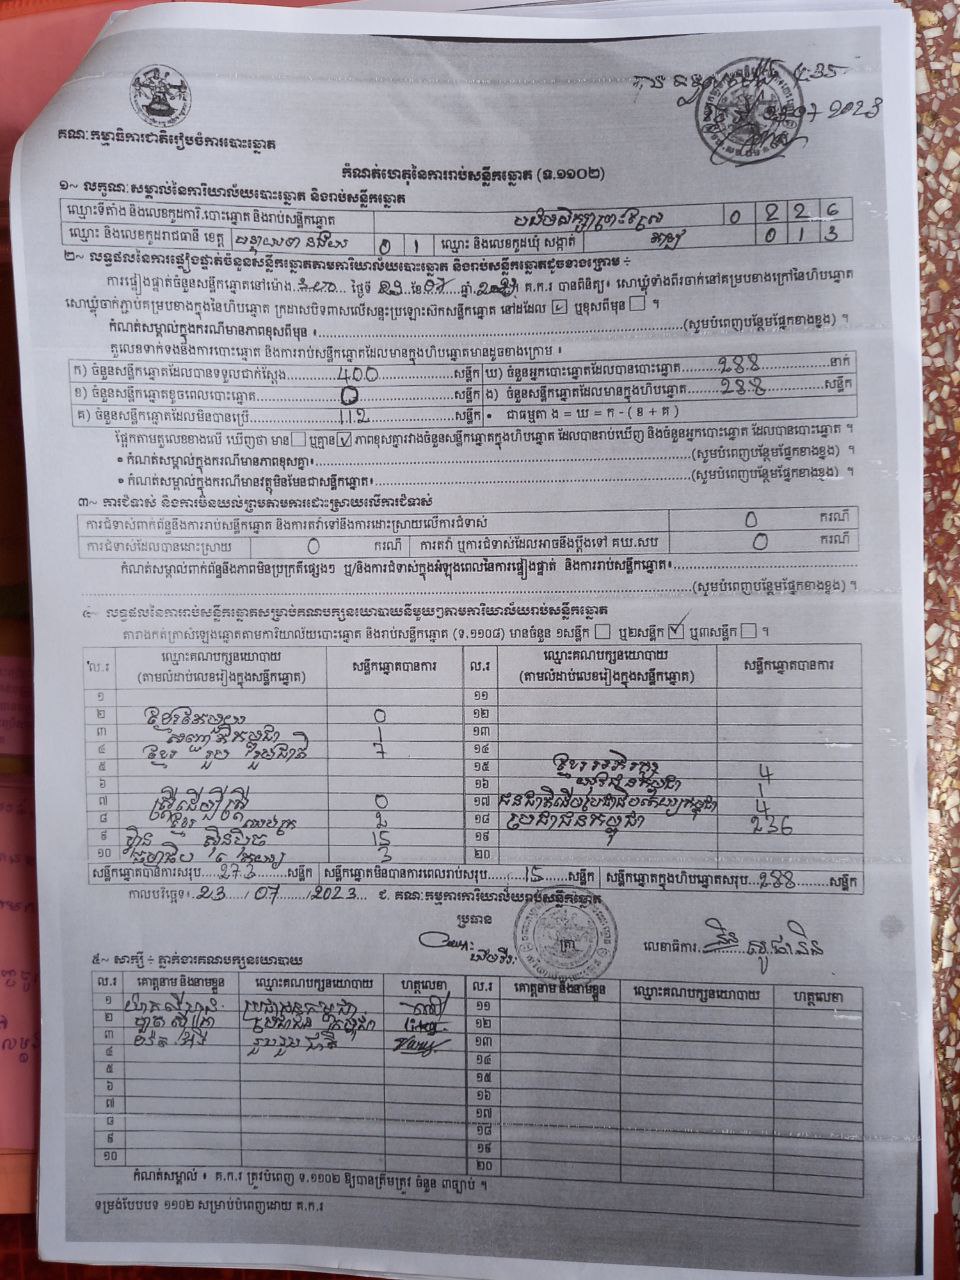 គណៈកម្មាធិការជាតិរៀបចំការបោះឆ្នោត
4:35
23.07 2023
កំណត់ហេតុនៃការរាប់សន្លឹកឆ្នោត (ទ.១១០២)
១~ លក្ខណៈសម្គាល់នៃការិយាល័យបោះឆ្នោត និងរាប់សន្លឹកឆ្នោត
ឈ្មោះទីតាំង និងលេខកូដការិ.បោះឆ្នោត និងរាប់សន្លឹកឆ្នោត 0 2 2 6
ឈ្មោះ និងលេខកូដរាជធានី ខេត្ត បន្ទាយមានជ័យ 0 1 ឈ្មោះ និងលេខកូដឃុំ សង្កាត់ 0 1 3
២~ លទ្ធផលនៃការផ្ទៀងផ្ទាត់ចំនួនសន្លឹកឆ្នោតតាមការិយាល័យបោះឆ្នោត និងរាប់សន្លឹកឆ្នោតដូចខាងក្រោម ÷
ការផ្ទៀងផ្ទាត់ចំនួនសន្លឹកឆ្នោតនៅម៉ោង ថ្ងៃទី 23 ខែ 07 ឆ្នាំ គ.ក.រ បានពិនិត្យ៖ សោឃ្លុំទាំងពីរចាក់នៅគម្របខាងក្រៅនៃហិបឆ្នោត
សោឃ្លុំចាក់ភ្ជាប់គម្របខាងក្នុងនៃហិបឆ្នោត ក្រដាសបិទពាសលើសន្ទះប្រឡោះស៊កសន្លឹកឆ្នោត នៅដដែល ☑ ឬខុសពីមុន ☐ ។
កំណត់សម្គាល់ក្នុងករណីមានភាពខុសពីមុន ៖ (សូមបំពេញបន្ថែមផ្នែកខាងខ្នង) ។
តួលេខទាក់ទងនឹងការបោះឆ្នោត និងការរាប់សន្លឹកឆ្នោតដែលមានក្នុងហិបឆ្នោតមានដូចខាងក្រោម ៖
ក) ចំនួនសន្លឹកឆ្នោតដែលបានទទួលជាក់ស្តែង 400 សន្លឹក ឃ) ចំនួនអ្នកបោះឆ្នោតដែលបានបោះឆ្នោត 288 នាក់
ខ) ចំនួនសន្លឹកឆ្នោតខូចពេលបោះឆ្នោត 0 សន្លឹក ង) ចំនួនសន្លឹកឆ្នោតដែលមានក្នុងហិបឆ្នោត 288 សន្លឹក
គ) ចំនួនសន្លឹកឆ្នោតដែលមិនបានប្រើ 112 សន្លឹក • ជាធម្មតា ង = ឃ = ក - ( ខ + គ )
ផ្អែកតាមតួលេខខាងលើ ឃើញថា មាន ☐ ឬគ្មាន ☑ ភាពខុសគ្នារវាងចំនួនសន្លឹកឆ្នោតក្នុងហិបឆ្នោត ដែលបានរាប់ឃើញ និងចំនួនអ្នកបោះឆ្នោត ដែលបានបោះឆ្នោត ។
• កំណត់សម្គាល់ក្នុងករណីមានភាពខុសគ្នា៖ (សូមបំពេញបន្ថែមផ្នែកខាងខ្នង) ។
• កំណត់សម្គាល់ក្នុងករណីមានវត្ថុមិនមែនជាសន្លឹកឆ្នោត៖ (សូមបំពេញបន្ថែមផ្នែកខាងខ្នង) ។
៣~ ការជំទាស់ និងការមិនយល់ព្រមតាមការដោះស្រាយលើការជំទាស់
ការជំទាស់ពាក់ព័ន្ធនឹងការរាប់សន្លឹកឆ្នោត និងការតវ៉ាទៅនឹងការដោះស្រាយលើការជំទាស់ 0 ករណី
ការជំទាស់ដែលបានដោះស្រាយ 0 ករណី ការតវ៉ា ឬការជំទាស់ដែលអាចនឹងប្តឹងទៅ គឃ.សប 0 ករណី
កំណត់សម្គាល់ពាក់ព័ន្ធនឹងភាពមិនប្រក្រតីផ្សេងៗ ឬ/និងការជំទាស់ក្នុងអំឡុងពេលនៃការផ្ទៀងផ្ទាត់ និងការរាប់សន្លឹកឆ្នោត៖
(សូមបំពេញបន្ថែមផ្នែកខាងខ្នង) ។
៤~ លទ្ធផលនៃការរាប់សន្លឹកឆ្នោតសម្រាប់គណបក្សនយោបាយនីមួយៗតាមការិយាល័យរាប់សន្លឹកឆ្នោត
តារាងកត់ត្រាសំឡេងឆ្នោតតាមការិយាល័យបោះឆ្នោត និងរាប់សន្លឹកឆ្នោត (ទ.១១០៨) មានចំនួន ១សន្លឹក ☐ ឬ២សន្លឹក ☑ ឬ៣សន្លឹក ☐ ។
ល.រ ឈ្មោះគណបក្សនយោបាយ (តាមលំដាប់លេខរៀងក្នុងសន្លឹកឆ្នោត) សន្លឹកឆ្នោតបានការ ល.រ ឈ្មោះគណបក្សនយោបាយ (តាមលំដាប់លេខរៀងក្នុងសន្លឹកឆ្នោត) សន្លឹកឆ្នោតបានការ
១ ១១
២ 0 ១២
៣ 1 ១៣
៤ ខ្មែរ រួបរួមជាតិ 7 ១៤
៥ ១៥ 4
៦ ១៦ 1
៧ ស្ត្រីដើម្បីស្ត្រី 0 ១៧ 4
៨ 2 ១៨ ប្រជាជនកម្ពុជា 236
៩ ហ្វ៊ុនស៊ិនប៉ិច 15 ១៩
១០ 3 ២០
សន្លឹកឆ្នោតបានការសរុប 273 សន្លឹក សន្លឹកឆ្នោតមិនបានការពេលរាប់សរុប 15 សន្លឹក សន្លឹកឆ្នោតក្នុងហិបឆ្នោតសរុប 288 សន្លឹក
កាលបរិច្ឆេទ៖ 23 / 07 / 2023 ជ. គណៈកម្មការការិយាល័យរាប់សន្លឹកឆ្នោត
ប្រធាន
ត្រា
លេខាធិការ
៥~ សាក្សី ÷ ភ្នាក់ងារគណបក្សនយោបាយ
ល.រ គោត្តនាម និងនាមខ្លួន ឈ្មោះគណបក្សនយោបាយ ហត្ថលេខា ល.រ គោត្តនាម និងនាមខ្លួន ឈ្មោះគណបក្សនយោបាយ ហត្ថលេខា
១ ប្រជាជនកម្ពុជា ១១
២ ប្រជាជន កម្ពុជា ១២
៣ រួបរួមជាតិ ១៣
៤ ១៤
៥ ១៥
៦ ១៦
៧ ១៧
៨ ១៨
៩ ១៩
១០ ២០
កំណត់សម្គាល់ ៖ គ.ក.រ ត្រូវបំពេញ ទ.១១០២ ឱ្យបានត្រឹមត្រូវ ចំនួន ៣ច្បាប់ ។
ទម្រង់បែបបទ ១១០២ សម្រាប់បំពេញដោយ គ.ក.រ